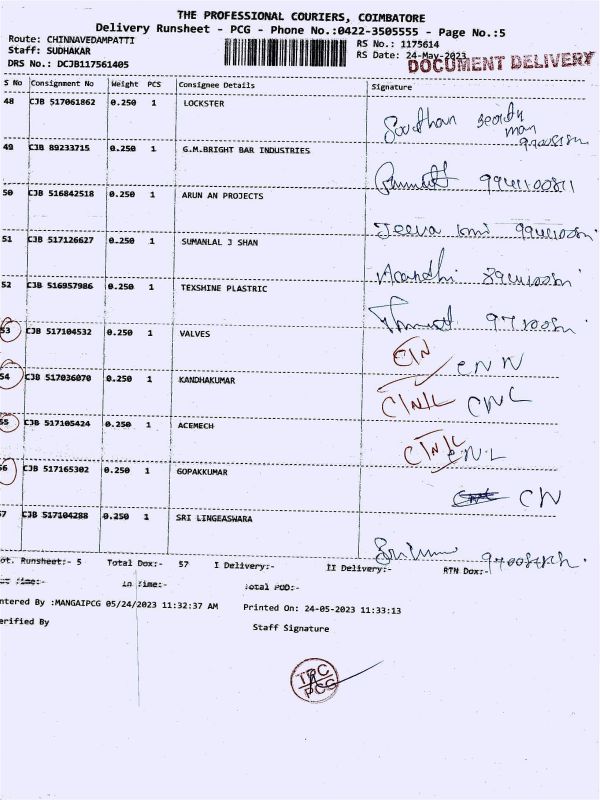 THE PROFESSIONAL COURIERS, COIMBATORE
Delivery Runsheet - PCG - Phone No.:0422-3505555 - Page No.:5
Route: CHINNAVEDAMPATTI RS No.: 1175614
Staff: SUDHAKAR RS Date: 24-May-2023
DRS No.: DCJB117561405 DOCUMENT DELIVERY
S No Consignment No Weight PCS Consignee Details Signature
48 CJB 517061862 0.250 1 LOCKSTER
49 CJB 89233715 0.250 1 G.M.BRIGHT BAR INDUSTRIES
50 CJB 516842518 0.250 1 ARUN AN PROJECTS
51 CJB 517126627 0.250 1 SUMANLAL J SHAN
52 CJB 516957986 0.250 1 TEXSHINE PLASTRIC
53 CJB 517104532 0.250 1 VALVES
54 CJB 517036070 0.250 1 KANDHAKUMAR CNL
55 CJB 517105424 0.250 1 ACEMECH
56 CJB 517165302 0.250 1 GOPAKKUMAR CN
57 CJB 517104288 0.250 1 SRI LINGEASWARA
ot. Runsheet:- 5 Total Dox:- 57 I Delivery:- II Delivery:- RTN Dox:-
Time:- In Time:- Total POD:-
ntered By :MANGAIPCG 05/24/2023 11:32:37 AM Printed On: 24-05-2023 11:33:13
erified By Staff Signature
TPC
PCG